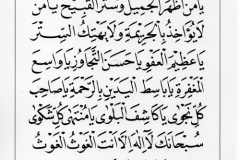 يَا مَنْ أَظْهَرَ الْجَمِيلَ وَسَتَرَ الْقَبِيحَ يَا مَنْ
لَا يُؤَاخِذُ بِالْجَرِيرَةِ وَلَا يَهْتِكُ السِّتْرَ
يَا عَظِيمَ الْعَفْوِ يَا حَسَنَ التَّجَاوُزِ يَا وَاسِعَ
الْمَغْفِرَةِ يَا بَاسِطَ الْيَدَيْنِ بِالرَّحْمَةِ يَا صَاحِبَ
كُلِّ نَجْوَى يَا كَاشِفَ الْبَلْوَى يَا مُنْتَهَى كُلِّ شَكْوَى
سُبْحَانَكَ لَا إِلَهَ إِلَّا أَنْتَ الْغَوْثَ الْغَوْثَ